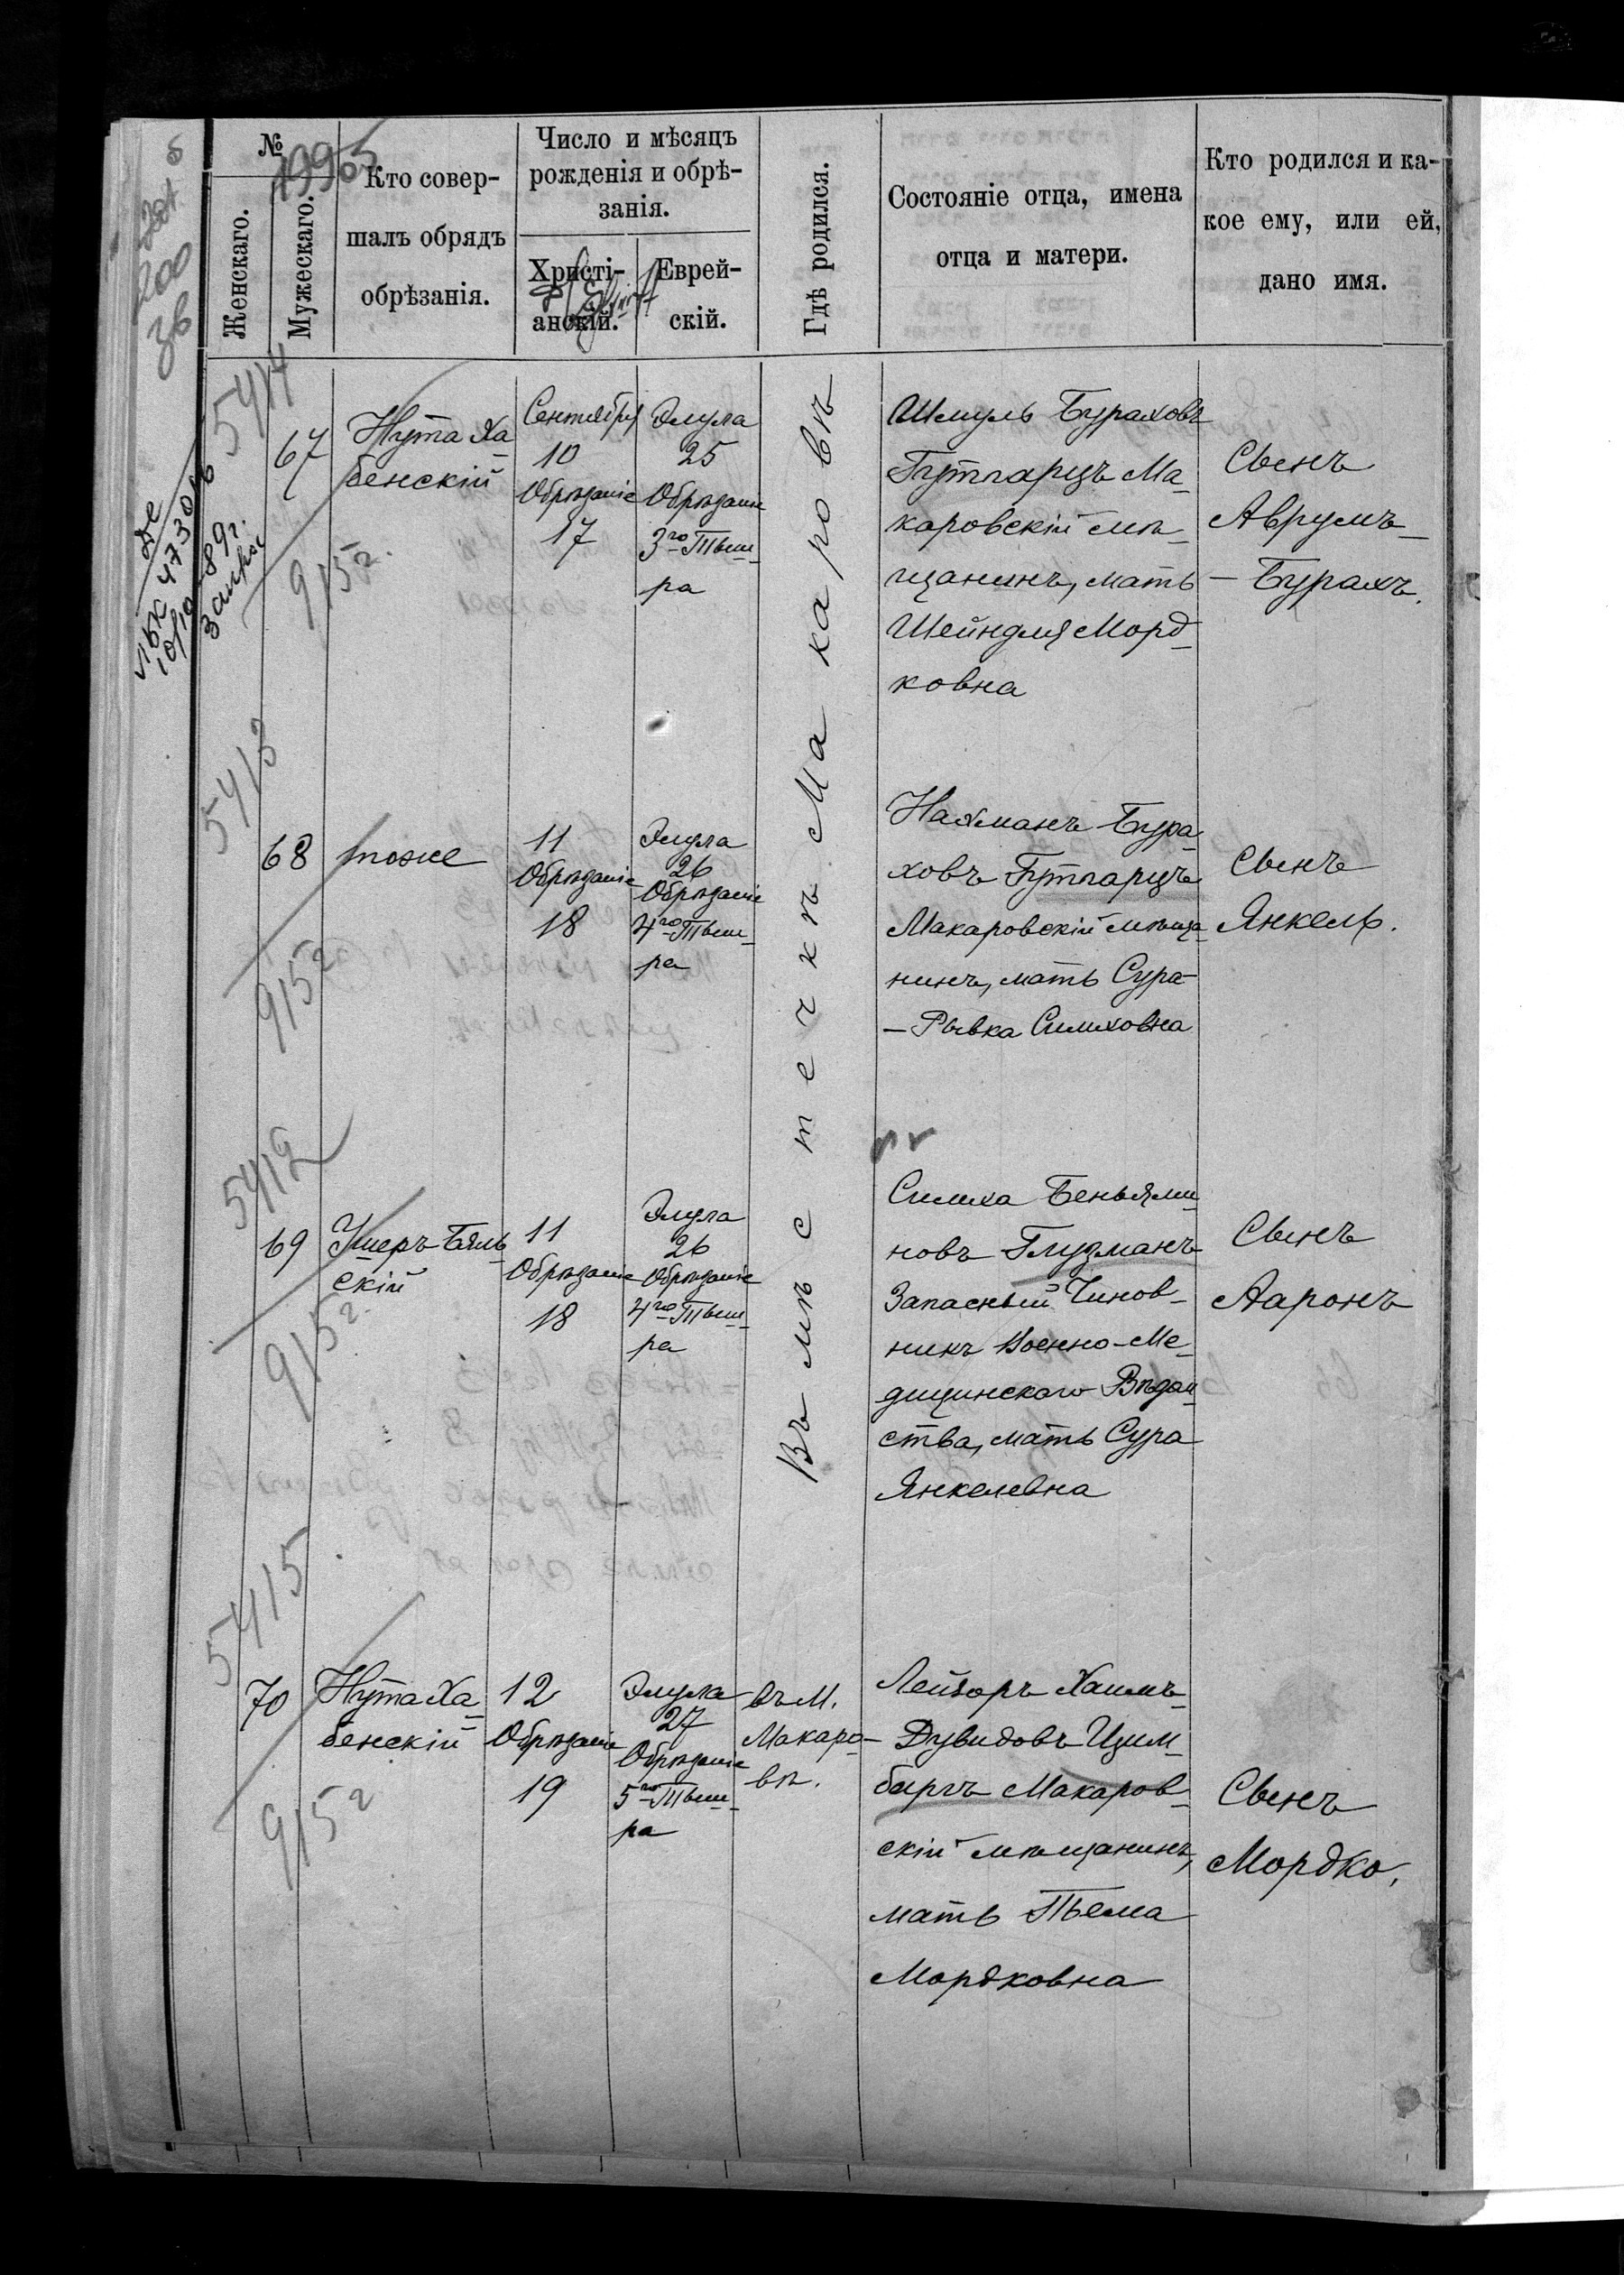 №
19965
Женскаго.
Мужескаго.
Кто совер-
шалъ обрядъ
обрѣзанія.
Число и мѣсяцъ
рожденія и обрѣ-
занія.
Христі-
анскій.
Еврей-
скій.
Гдѣ родился.
Состояніе отца, имена
отца и матери.
Кто родился и ка-
кое ему, или ей,
дано имя.
200
36
Въ мѣстечкѣ Макаровѣ
5414
67
9152
Нута Ха-
бенскій
Сентября
10
Обрѣзаніе
17
Элула
25
Обрѣзаніе
3го Тыш-
ра
Шмуль Бураховъ
Гутгарцъ Ма-
каровскій мѣ-
щанинъ, мать
Шейндля Морд-
ковна
Сынъ
Аврумъ-
- Бурахъ.
5413
68
9152
тоже
11
Обрѣзаніе
18
Элула
26
Обрѣзаніе
4го Тыш-
ра
Нахманъ Бура-
ховъ Гутгарцъ
Макаровскій мѣща-
нинъ, мать Сура-
- Рывка Симховна
Сынъ
Янкель.
5412
69
9152
Ушеръ Бѣль-
скій
11
Обрѣзаніе
18
Элула
26
Обрѣзаніе
4го Тыш-
ра
Симха Беньями-
новъ Глузманъ
Запасный Чинов-
никъ Военно-Ме-
дицинскаго Вѣдом-
ства, мать Сура
Янкелевна
Сынъ
Ааронъ
5415
70
9152
Нута Ха-
бенскій
12
Обрѣзаніе
19
Элула
27
Обрѣзаніе
5го Тыш-
ра
въ м.
Макаро-
вѣ.
Лейзоръ Хаимъ-
- Дувидовъ Цим-
бергъ Макаров-
скій мѣщанинъ,
мать
Мордковна
Сынъ
Мордко.